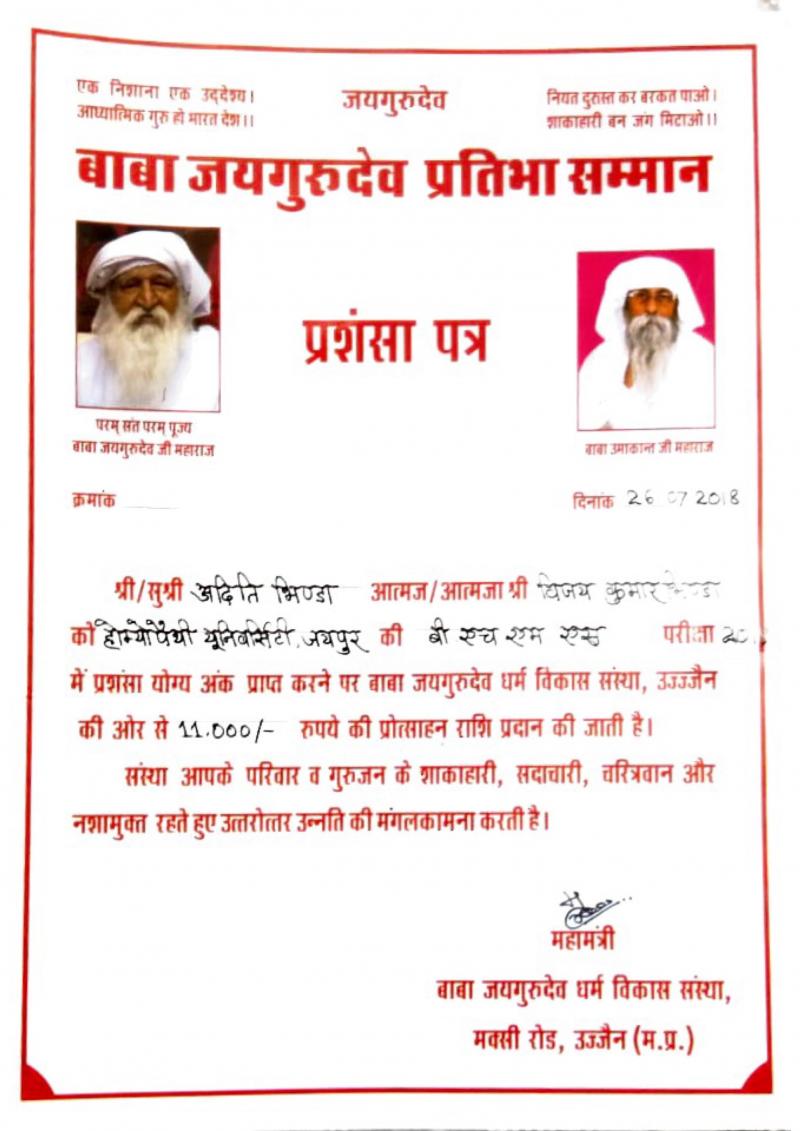 एक निशाना एक उद्देश्य।
आध्यात्मिक गुरु हो भारत देश।।
जयगुरुदेव
नियत दुरुस्त कर बरकत पाओ।
शाकाहारी बन जंग मिटाओ।।
बाबा जयगुरुदेव प्रतिभा सम्मान
प्रशंसा पत्र
परम् संत परम् पूज्य
बाबा जयगुरुदेव जी महाराज
बाबा उमाकान्त जी महाराज
क्रमांक
दिनांक 26 07 2018
श्री/सुश्री अदिति भिण्डा आत्मज/आत्मजा श्री विजय कुमार भिण्डा
को होम्योपैथी यूनिवर्सिटी, जयपुर की बी एच एम एस परीक्षा
में प्रशंसा योग्य अंक प्राप्त करने पर बाबा जयगुरुदेव धर्म विकास संस्था, उज्जैन
की ओर से 11.000/- रुपये की प्रोत्साहन राशि प्रदान की जाती है।
संस्था आपके परिवार व गुरुजन के शाकाहारी, सदाचारी, चरित्रवान और
नशामुक्त रहते हुए उत्तरोत्तर उन्नति की मंगलकामना करती है।
महामंत्री
बाबा जयगुरुदेव धर्म विकास संस्था,
मक्सी रोड, उज्जैन (म.प्र.)